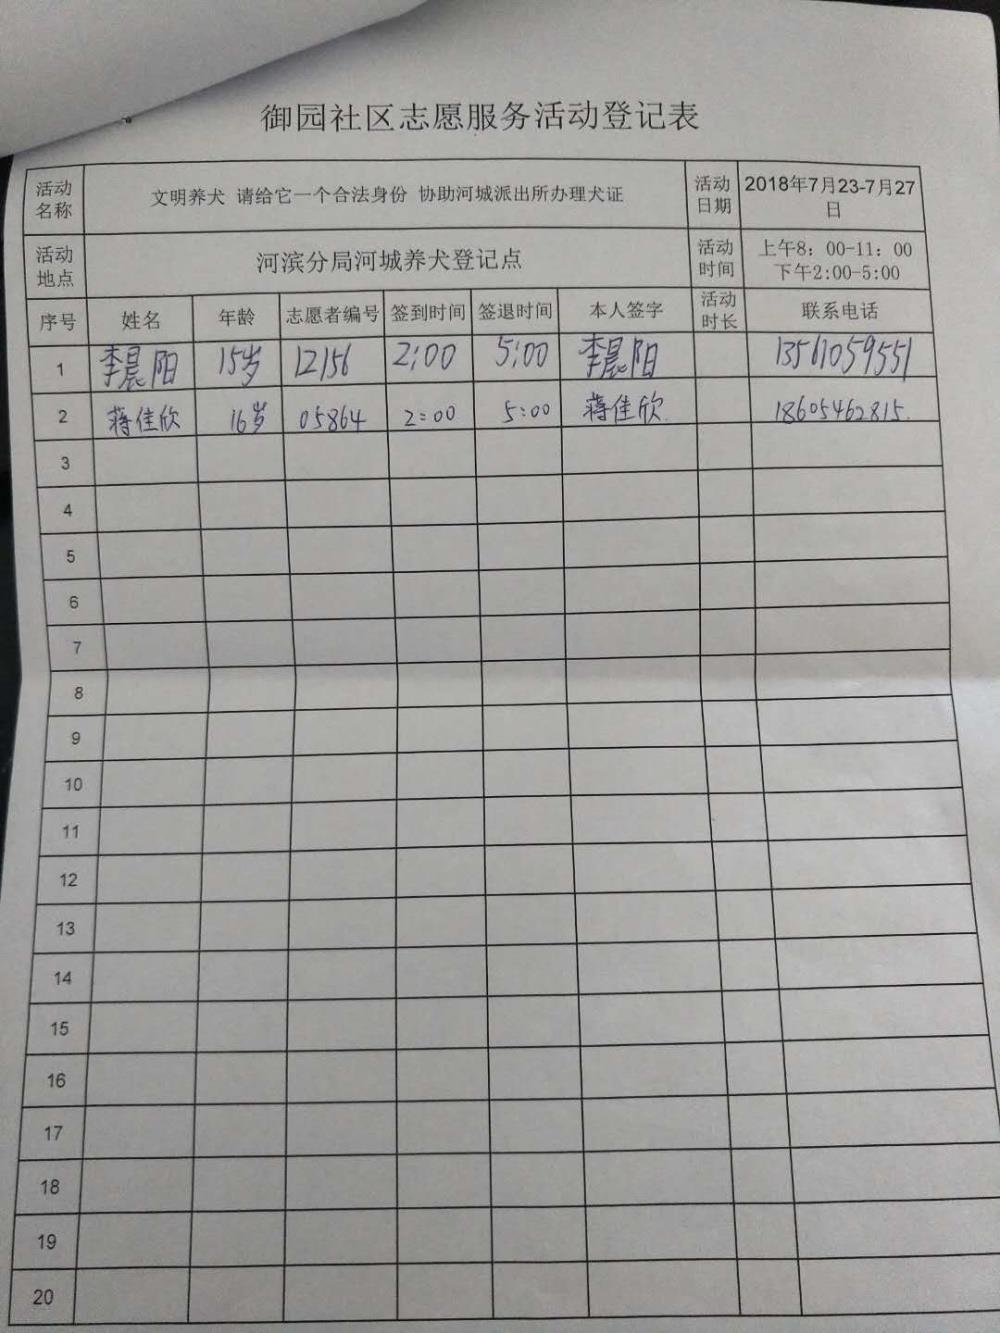 御园社区志愿服务活动登记表
活动名称 文明养犬 请给它一个合法身份 协助河城派出所办理犬证 活动日期 2018年7月23-7月27日
活动地点 河滨分局河城养犬登记点 活动时间 上午8：00-11：00 下午2:00-5:00
序号 姓名 年龄 志愿者编号 签到时间 签退时间 本人签字 活动时长 联系电话
1 李晨阳 15岁 12156 2:00 5:00 李晨阳 13561059551
2 蒋佳欣 16岁 05864 2:00 5:00 蒋佳欣 18605462815.
3
4
5
6
7
8
9
10
11
12
13
14
15
16
17
18
19
20